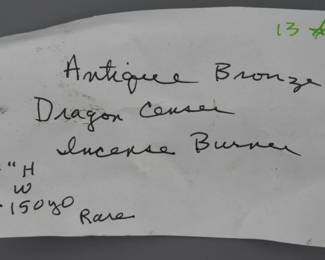 13
Antique Bronze
Dragon Censer
Incense Burner
"H
W
150yo
Rare